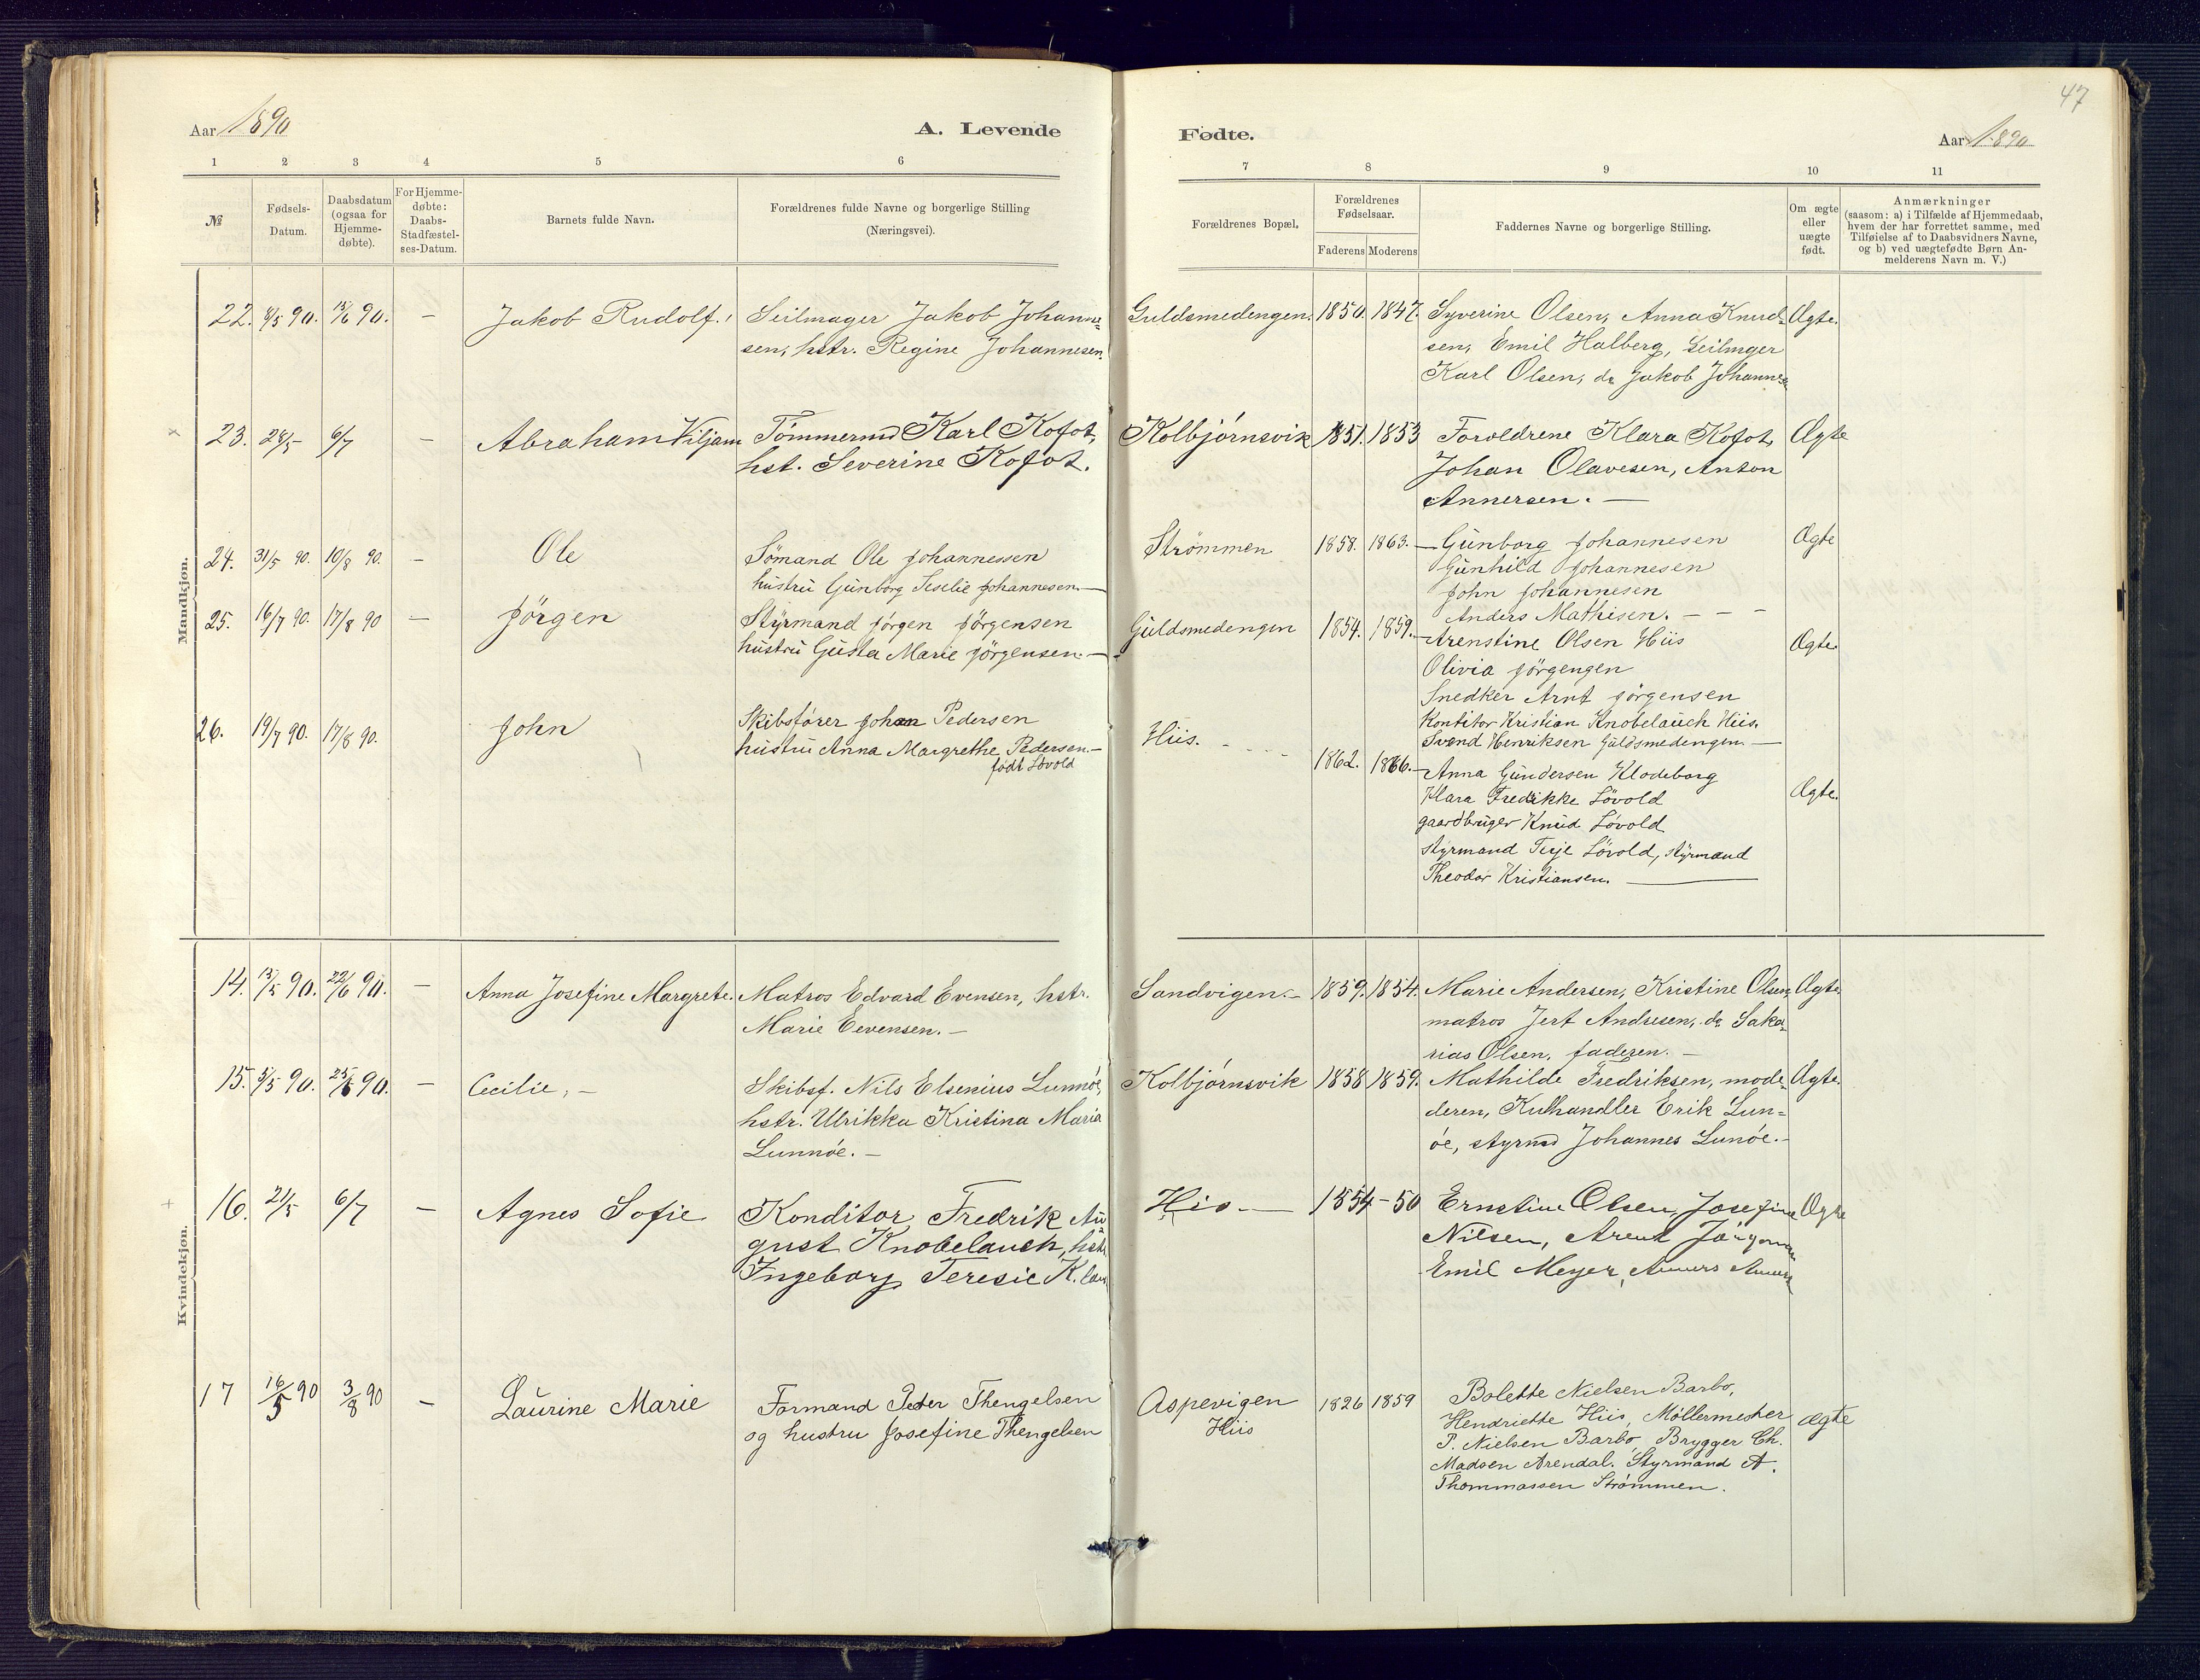 47
Aar 1890
A. Levende
Fødte.
Aar 1890
1 2 3 4 5 6
7 8 9 10 11
№
Fødsels-
Datum.
Daabsdatum
(ogsaa for
Hjemme-
døbte).
For Hjemme-
døbte:
Daabs-
Stadfæstel-
ses-Datum.
Barnets fulde Navn.
Forældrenes fulde Navne og borgerlige Stilling
(Næringsvei).
Forældrenes Bopæl.
Forældrenes
Fødselsaar.
Faderens Moderens
Faddernes Navne og borgerlige Stilling.
Om ægte
eller
uægte
født.
Anmærkninger
(saasom: a) i Tilfælde af Hjemmedaab,
hvem der har forrettet samme, med
Tilføielse af to Daabsvidners Navne,
og b) ved uægtefødte Børn An-
melderens Navn m. V.)
Mandkjøn.
22. 8/5 90. 15/6 90. - Jakob Rudolf. Seilmager Jakob Johanne-
sen, hstr. Regine Johannesen.
Guldsmedengen. 1850. 1847. Syverine Olsen, Anna Knud- Ægte.
sen, Emil Halberg, Seilmger
Karl Olsen, do Jakob Johannese
23. 28/5 6/7 - Abraham Viljam Tömmermd Karl Kofot,
hst. Severine Kofot.
Kolbjörnsvik 1851. 1853 Foroldrene Klara Kofot, Ægte
Johan Olavesen, Anton
Annersen. —
24. 31/5 90. 10/8 90. - Ole Sömand Ole Johannessen
hustru Gunborg Seselie Johannesen. —
Strømmen 1858. 1863. — Gunborg Johannesen Ægte
Gunhild Johannesen
John Johannesen
Anders Mathisen. - - -
25. 16/7 90. 17/8 90 - Jörgen Styrmand Jörgen Jörgensen
hustru Gusta Marie Jörgensen. —
Guldsmedengen 1854. 1859. — Arenstine Olsen Hiis Ægte.
Olivia Jörgengen
Snedker Arnt Jörgensen
Kontitor Kristian Knobelauch Hiis.
Svend Henriksen Guldsmedengen. —
26. 19/7 90. 17/8 90. John Skibsfører John Pedersen
hustru Anna Margrethe Pedersen. —
født Lövold
Hiis. - - - - 1862. 1866. — Anna Gundersen Klodeborg
Klara Fredrikke Lövold Ægte.
gaardbruger Knud Lövold
styrmand Terje Lövold, styrmand
Theodor Kristiansen. —
Kvindekjøn.
14. 13/5 90. 22/6 90. - Anna Josefine Margrete. Matros Edvard Evensen, hstr.
Marie Eevensen. —
Sandvigen. - 1859. 1854. Marie Andersen, Kristine Olsen, Ægte
matros Jert Andresen, do Saka-
rias Olsen, faderen. —
15. 5/5 90. 25/6 90. - Cecilie. - Skibsf. Nils Elsenius Lunnöe,
hstr. Ulrikka Kristina Maria
Lunnöe. —
Kolbjörnsvik 1858 1859. Mathilde Fredriksen, mode- Ægte.
deren, Kulhandler Erik Lun-
öe, styrmd Johannes Lunöe. -
16. 21/5 6/7 - Agnes Sofie Konditor Fredrik Au-
gust Knobelauch, hstr
Ingeborg Teresie K.
His. — 1854 - 50 Ernstine Olsen, Josefine Ægte
Nilsen, Arent Jörgensen
Emil Meyer,
17 16/5 90 3/8 90 - Laurine Marie Formand Peder Thengelsen
og hustru Josefine Thengelsen
Aspevigen
Hiis
1826 1859 Bolette Nielsen Barbo,
Hendriette Hiis, Möllermester ægte
P. Nielsen Barbo, Brygger Ch.
Madsen Arendal. Styrmand A.
Thommassen Strømmen.